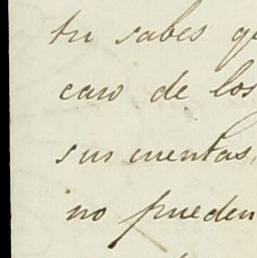 tu sabes qu
caso de los
sus cuentas,
no pueden